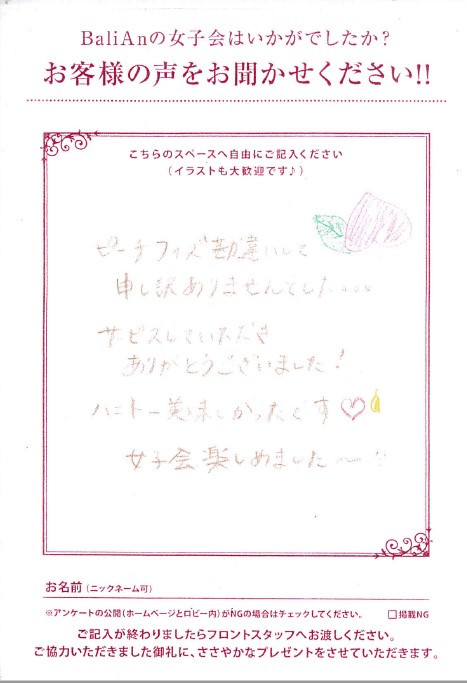 BaliAnの女子会はいかがでしたか？
お客様の声をお聞かせください!!
こちらのスペースへ自由にご記入ください
（イラストも大歓迎です♪）
ピーチフィズ勘違いして
申し訳ありませんでした。。。
サービスしていただき
ありがとうございました！
ハニトー美味しかったです♡
女子会楽しめました〜
お名前（ニックネーム可）
※アンケートの公開（ホームページとロビー内）がNGの場合はチェックしてください。 □掲載NG
ご記入が終わりましたらフロントスタッフへお渡しください。
ご協力いただきました御礼に、ささやかなプレゼントをさせていただきます。